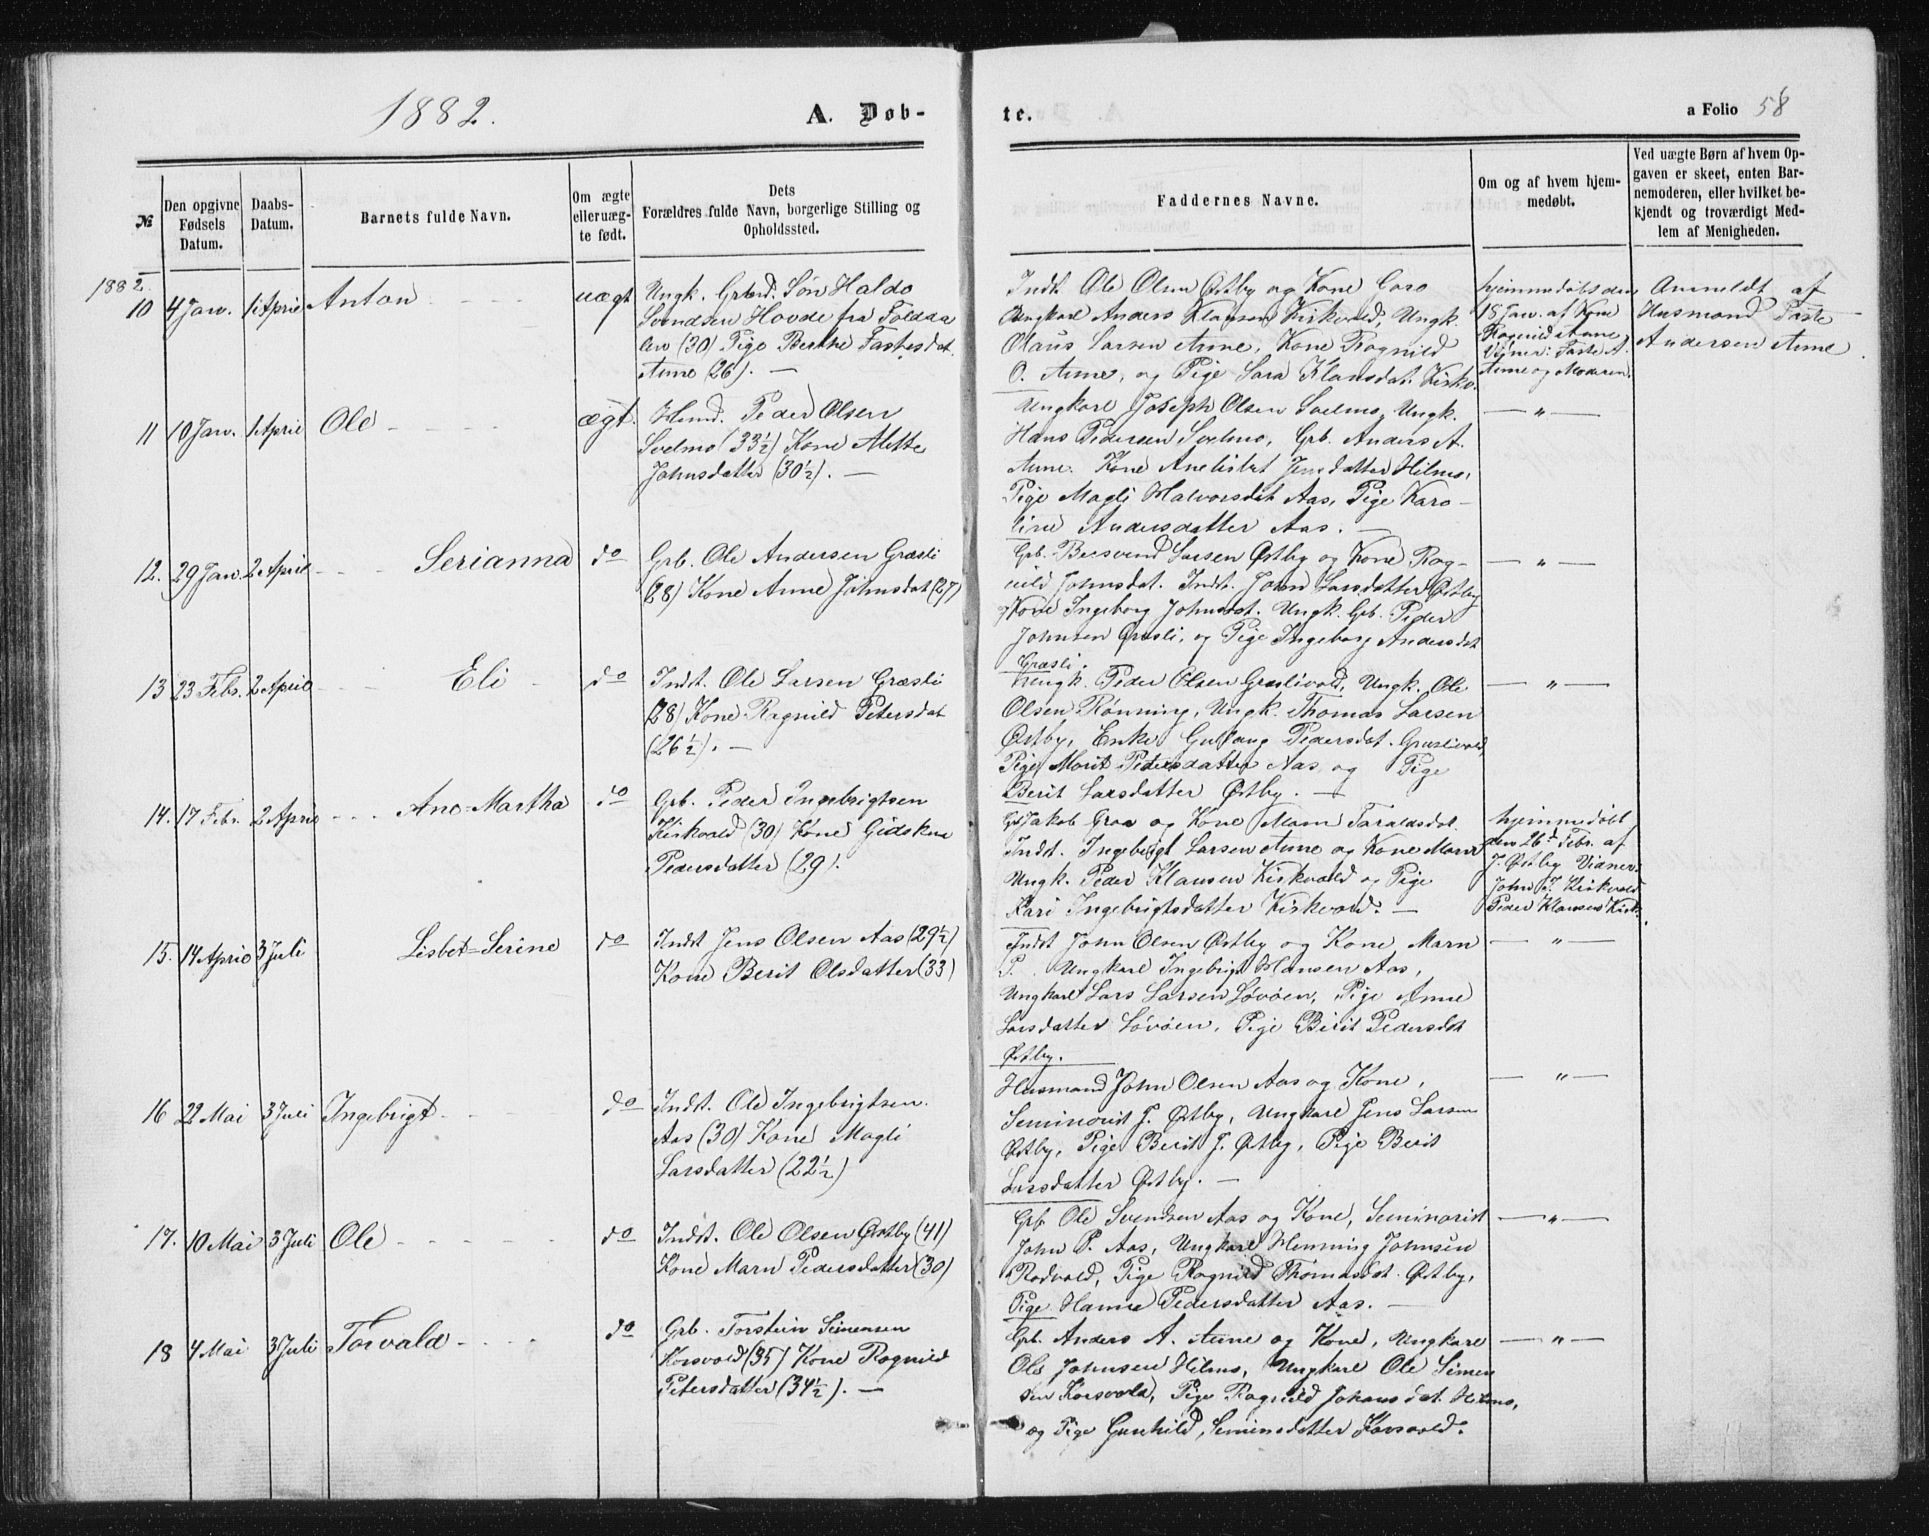 1882.
A. Døb-
te.
a Folio 58
№
Den opgivne
Fødsels
Datum.
Daabs-
Datum.
Barnets fulde Navn.
Om ægte
eller uæg-
te født.
Dets
Forældres fulde Navn, borgerlige Stilling og
Opholdssted.
Faddernes Navne.
Om og af hvem hjem-
medøbt.
Ved uægte Børn af hvem Op-
gaven er skeet, enten Bar-
nemoderen, eller hvilket be-
kjendt og troværdigt Med-
lem af Menigheden.
1882.
10 4 Jan. 1 April Anton uægt
Ungk. Grbrd. Søn Haldo
Svendsen Hovde fra Foldaa
len (30) Pige Berthe Fastesdat.
Aune (26). —
Indt Ole Olsen Østby og Kone Caro
Ungkarl Anders Klausen Kirkvold, Ungk.
Olaus Larsen Aune, Kone Ragnild
O. Aune, og Pige Sara Klausdat. Kirkv.
hjemmedøbt den
18 Jan. af Kone
Ragnild Aune
Vidner: Faste A.
Aune og Moderen.
Anmeldt af
Husmand Faste
Andersen Aune
11 10 Jan. 1 April Ole ægt.
Hmd. Peder Olsen
Svelmo (33½) Kone Mette
Johnsdatter (30½). —
Ungkarl Joseph Olsen Svelmo, Ungk.
Hans Pedersen Svelmo, Grb. Anders A.
Aune. Kone Anelisbet Jensdatter Hilmo,
Pige Magli Halvorsdat Aas, Pige Karo-
line Andersdatter Aas. —
— " —
12. 29 Jan. 2 April Serianna do
Grb. Ole Andersen Græsli
(28) Kone Anne Johnsdat (27)
Grb. Bersvend Larsen Østby og Kone Rag-
nild Johnsdat. Indt. John Larsdatter Østby
og Kone Ingeborg Johnsdat. Ungk. Grb. Peder
Johnsen Græsli, og Pige Ingeborg Andersdat
Græsli.
— " —
13 23 Feb. 2 April Eli do
Indt. Ole Larsen Græsli
(28) Kone Ragnild Petersdat
(26½). —
Ungk. Peder Olsen Græslivold, Ungk. Ole
Olsen Rønning, Ungk. Thomas Larsen
Østby, Enke Guland Pedersdat. Græslivold,
Pige Marit Pedersdatter Aas, og Pige
Berit Larsdatter Østby. —
— " —
14. 17 Febr. 2 April Ane-Martha do
Grb. Peder Ingebrigtsen
Kirkvold (30) Kone Gidsken
Pedersdatter (29).
Grb Jakob Graa og Kone Marn Taraldsdat.
Indt. Ingebrigt Larsen Aune og Kone Marit
Ungk. Peder Klausen Kirkvold og Pige
Kari Ingebrigtsdatter Kirkvold. —
hjemmedøbt
den 26d Febr. af
J. Østby Vidner:
John J. Kirkvold
Peder Klausen Kirk.
15. 14 April 3 Juli Lisbet-Serine do
Indt Jens Olsen Aas (29½)
Kone Berit Olsdatter (33)
Indt John Olsen Østby og Kone Marn
P. Ungkarl Ingebrigt Hansen Aas,
Ungkarl Lars Larsen Løvøen, Pige Anne
Larsdatter Løvøen, Pige Berit Pedersdat
Østby.
— " —
16 22 Mai 3 Juli Ingebrigt do
Indt. Ole Ingebrigtsen
Aas (30) Kone Magli
Larsdatter (22½)
Husmand John Olsen Aas og Kone,
Seminarist J. Østby, Ungkarl Jens Larsen
Østby, Pige Berit J. Østby, Pige Berit
Larsdatter Østby. —
— " —
17. 10 Mai 3 Juli Ole do
Indt. Ole Olsen Østby (41)
Kone Marn Pedersdatter (30)
Grb Ole Svendsen Aas og Kone, Seminarist
John P. Aas, Ungkarl Henning Johnsen
Rodvold, Pige Ragnild Thomasdat. Østby,
Pige Hanne Pedersdatter Aas. —
— " —
18 4 Mai 3 Juli Torvald do
Grb. Torstein Simensen
Korsvold (35) Kone Ragnild
Petersdatter (34½). —
Grb. Anders A. Aune og Kone, Ungkarl
Ole Johnsen Hilmo, Ungkarl Ole Simen
sen Korsvold, Pige Ragnild Johansdat. Hilmo,
og Pige Gunhild Simensdatter Korsvold.
— " —